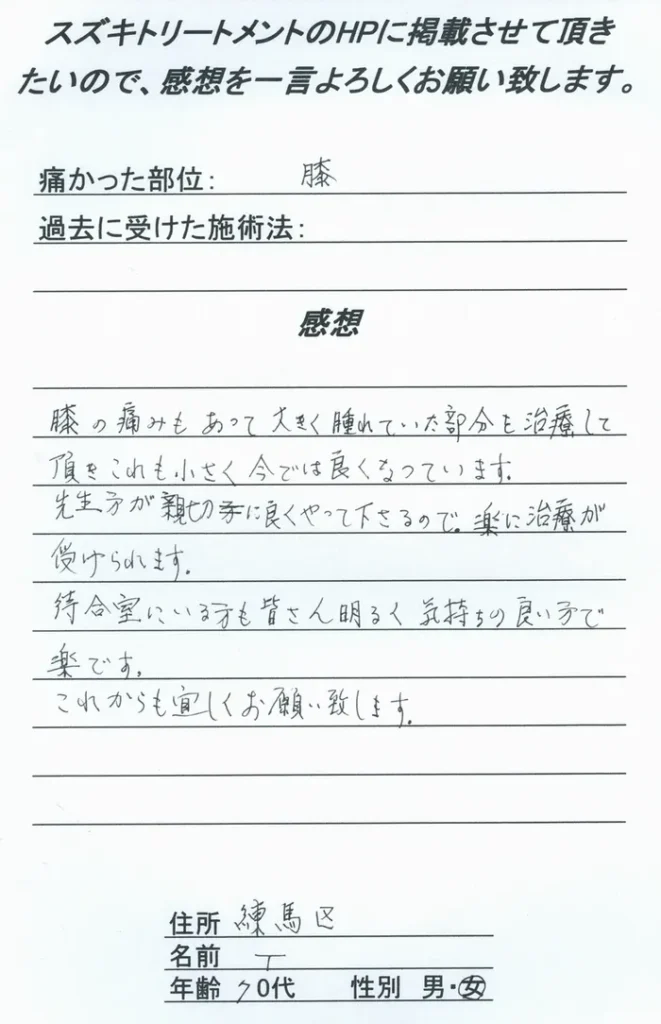 スズキトリートメントのHPに掲載させて頂き
たいので、感想を一言よろしくお願い致します。
痛かった部位： 膝
過去に受けた施術法：
感想
膝の痛みもあって大きく腫れていた部分も治療して
頂きこれも小さく今では良くなっています。
先生方が親切に良くやって下さるので、楽に治療が
受けられます。
待合室にいる方も皆さん明るく気持ちの良い方で
楽です。
これからも宜しくお願い致します。
住所 練馬区
名前 T
年齢 70代 性別 男・女